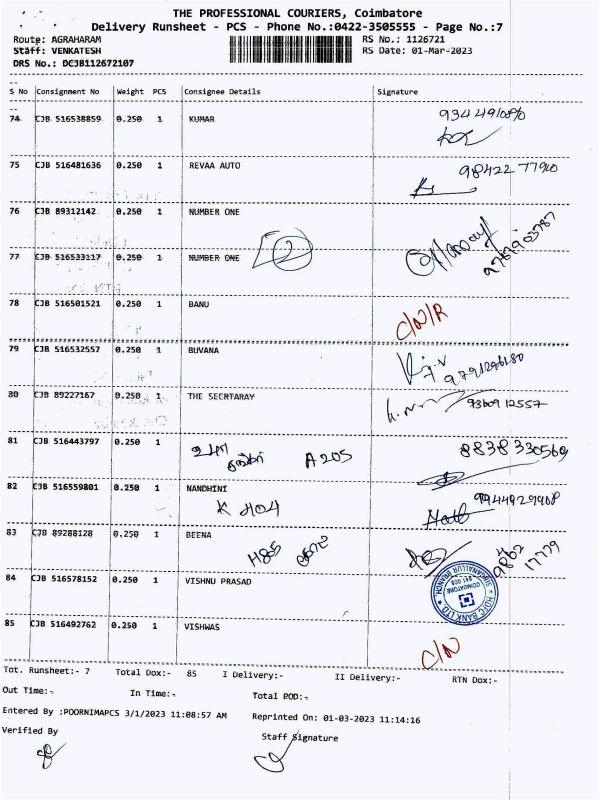 THE PROFESSIONAL COURIERS, Coimbatore
Delivery Runsheet - PCS - Phone No.:0422-3505555 - Page No.:7
Route: AGRAHARAM RS No.: 1126721
Staff: VENKATESH RS Date: 01-Mar-2023
DRS No.: DCJB112672107
S No Consignment No Weight PCS Consignee Details Signature
74 CJB 516538859 0.250 1 KUMAR
75 CJB 516481636 0.250 1 REVAA AUTO 98422 77910
76 CJB 89312142 0.250 1 NUMBER ONE
77 CJB 516533117 0.250 1 NUMBER ONE 2
78 CJB 516501521 0.250 1 BANU C/N/R
79 CJB 516532557 0.250 1 BUVANA
80 CJB 89227167 0.250 1 THE SECRTARAY 93609 12557
81 CJB 516443797 0.250 1 A 205 8838330569
82 CJB 516559801 0.250 1 NANDHINI
K 404
83 CJB 89288128 0.250 1 BEENA
84 CJB 516578152 0.250 1 VISHNU PRASAD
HDFC BANK LTD. SINGANALLUR BRANCH COIMBATORE
85 CJB 516492762 0.250 1 VISHWAS C/N
Tot. Runsheet:- 7 Total Dox:- 85 I Delivery:- II Delivery:- RTN Dox:-
Out Time:- In Time:- Total POD:-
Entered By :POORNIMAPCS 3/1/2023 11:08:57 AM Reprinted On: 01-03-2023 11:14:16
Verified By Staff Signature